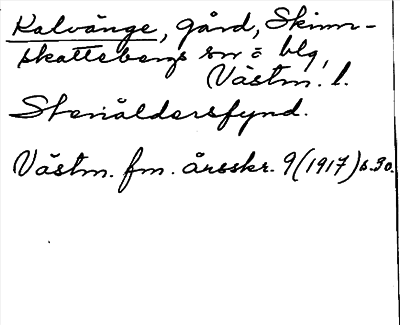 Kalvänge, gård, Skinn-
skattebergs sn o blg,
Västm. l.
Stenåldersfynd.
Västm. fm. årsskr. 9 (1917) s. 30.